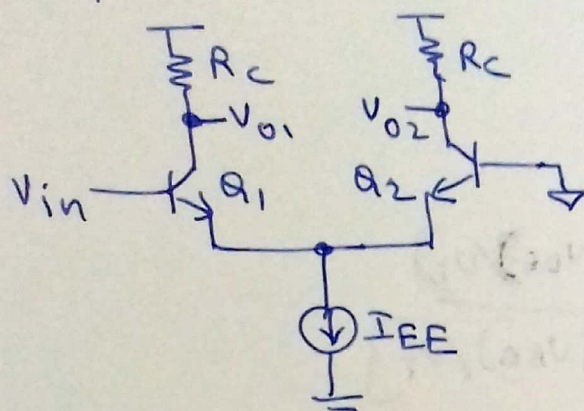 Rc
Rc
Vo1
Vo2
Vin
Q1
Q2
IEE